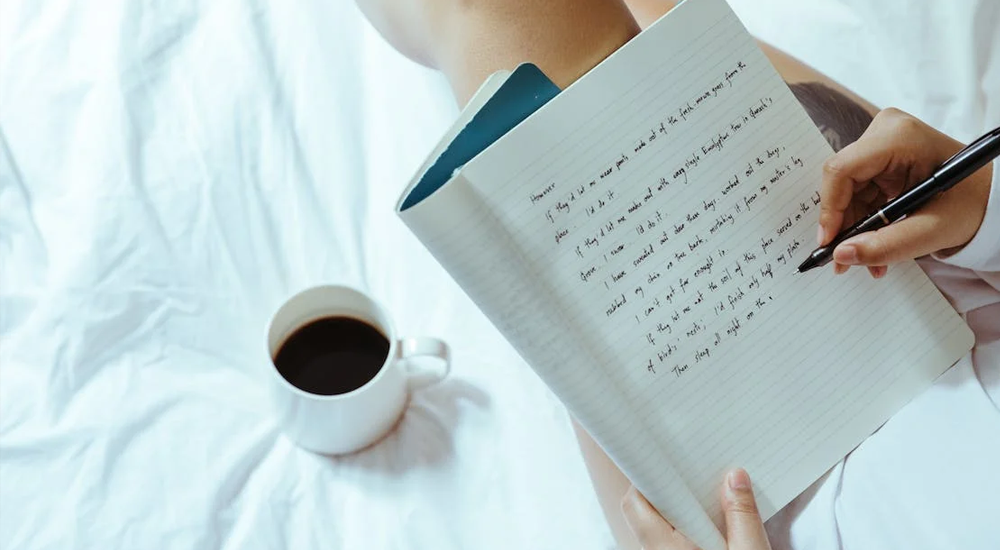 However
If they'd let me wear pants made out of the fresh, grass from the
place I'd do it.
If they'd let me make out with every single Eucalyptus tree in
Grove I swear I'd do it.
I have sweated out dew these days, worked out the dregs,
rubbed my chin on the bark, mistaking it for my master's leg
I can't get far enough in.
If they let me eat the soil of this place served on the bed
of birds' nests, I'd finish only half my plate
Then sleep all night on the